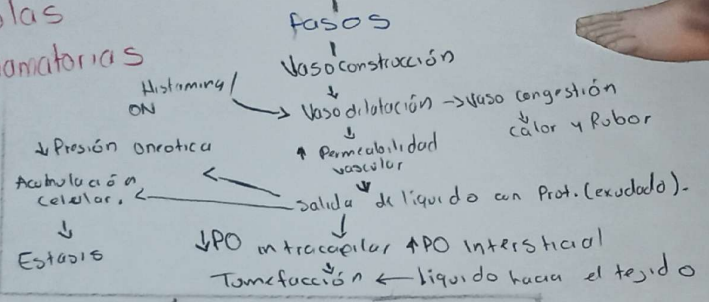 las
amatorias
fasos
Vasoconstrucción
↓
Histamina/
ON
Vasodilatación → vaso congestión
↓
calor y Rubor
↓
↑ Permeabilidad
vascular
↓ Presión oncotica
Acumulación
celular.
Salida de liquido con Prot. (exudado).
↓
Estasis
↓
↓PO intracapilar ↑PO Intersticial
Tumefacción ← liquido hacia el tejido